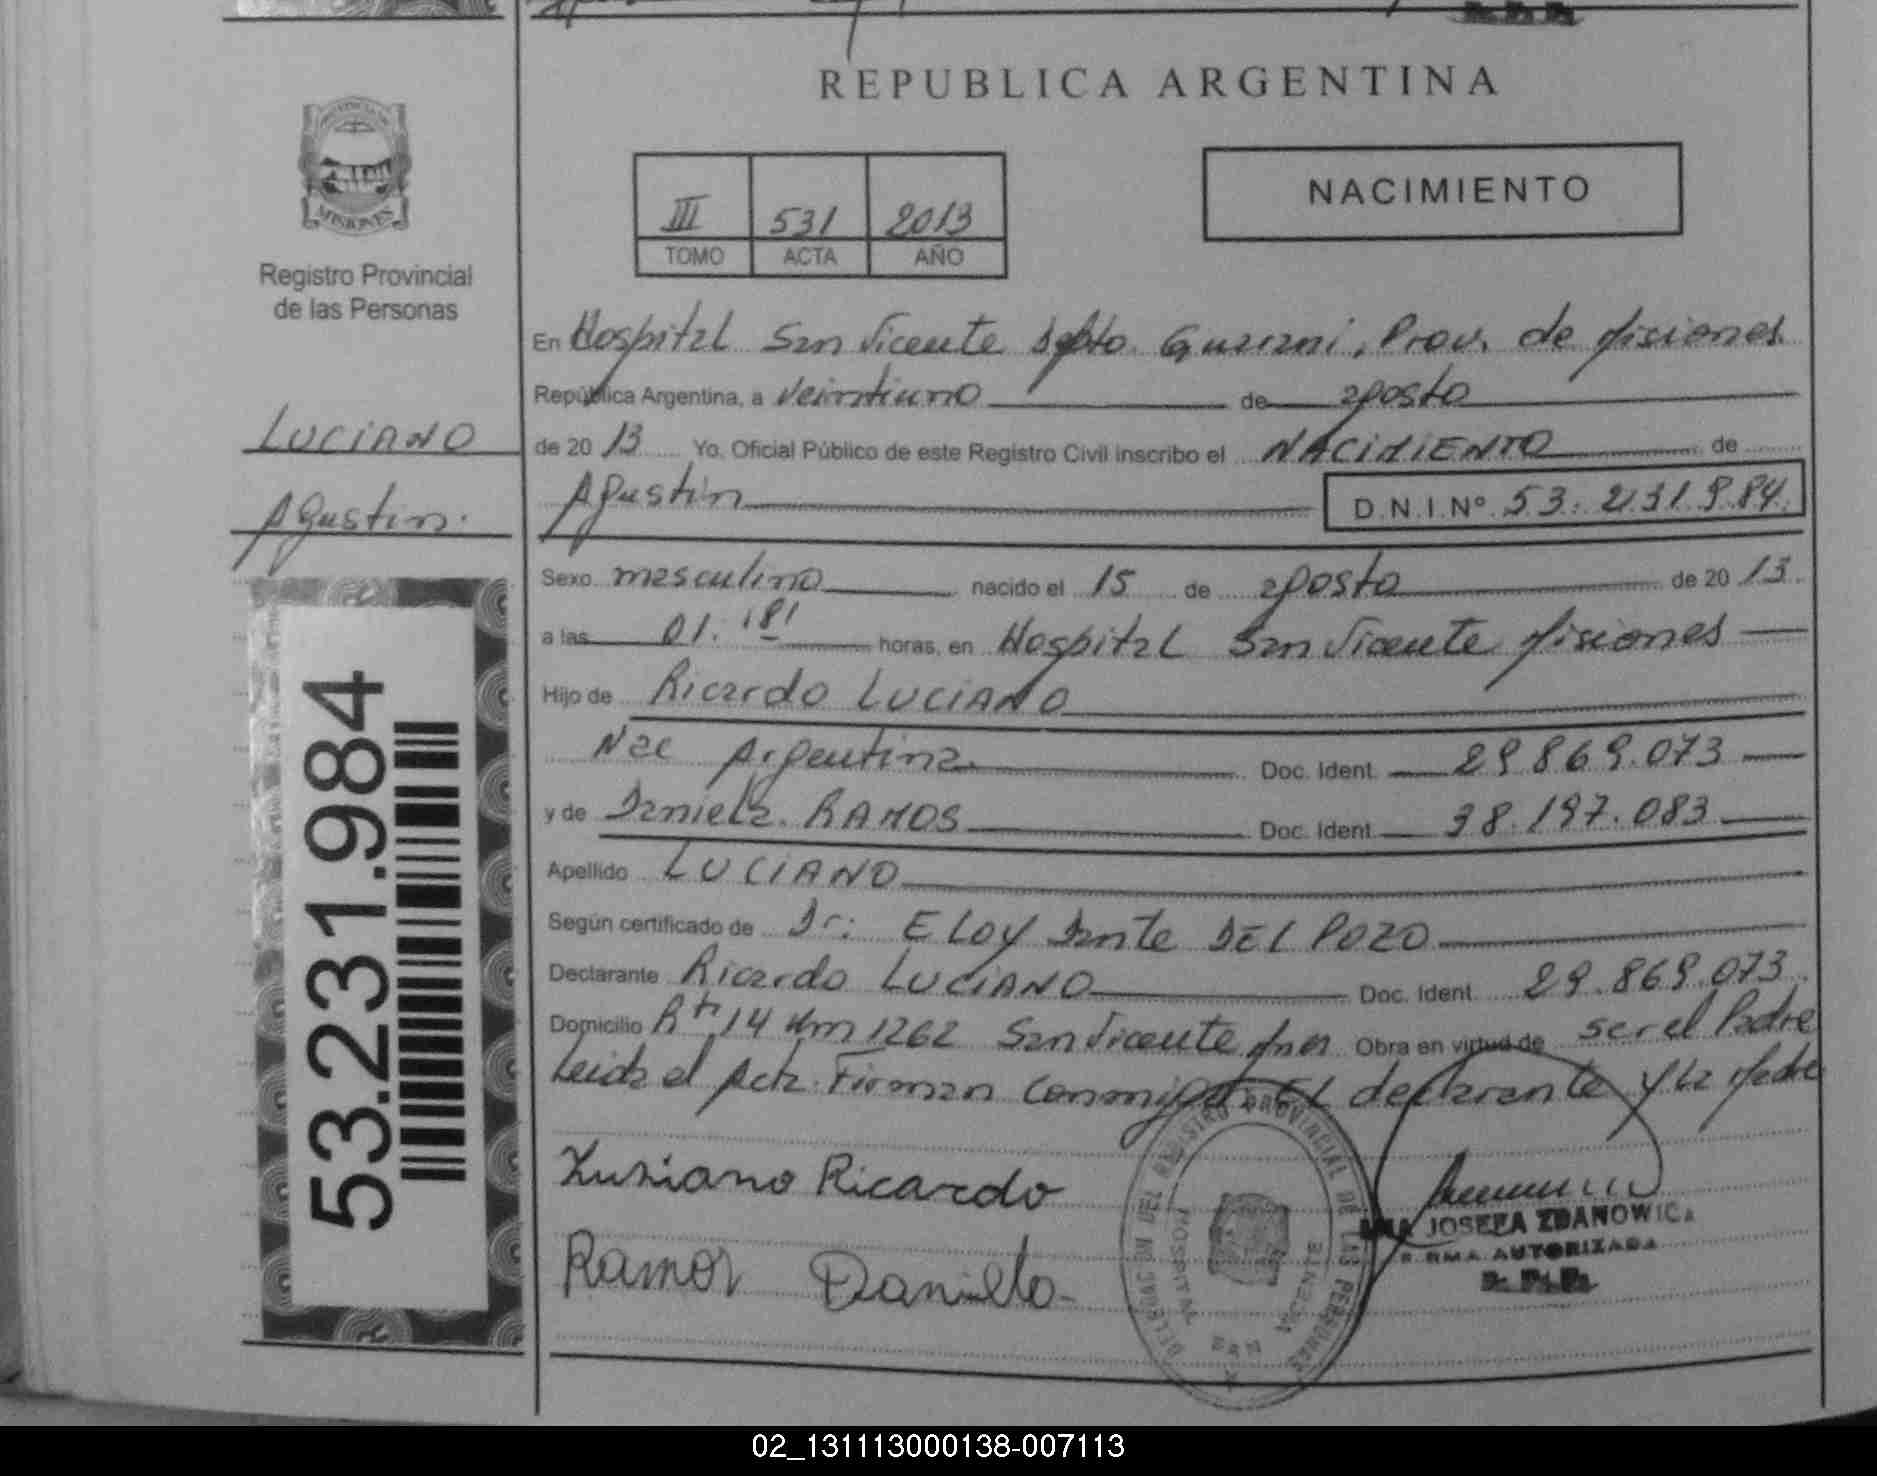 REPUBLICA ARGENTINA
PROVINCIA DE
MISIONES
Registro Provincial
de las Personas
III 531 2013
TOMO ACTA AÑO
NACIMIENTO
En Hospital San Vicente Dpto. Guarani, Prov. de Misiones
República Argentina, a veintiuno de agosto
de 20 13 Yo, Oficial Público de este Registro Civil inscribo el NACIMIENTO de
Agustin D.N.I.Nº 53.231.984
LUCIANO
Agustin.
Sexo masculino nacido el 15 de agosto de 20 13
a las 01. horas, en Hospital San Vicente Misiones
Hijo de Ricardo LUCIANO
Nac Argentina. Doc. Ident. 29.869.073
y de Daniela. RAMOS Doc. Ident. 38.197.083
Apellido LUCIANO
Según certificado de Dr: ELOY Dante DEL POZO
Declarante Ricardo LUCIANO Doc. Ident. 29.869.073
Domicilio Rta 14 Km 1262 San Vicente Mnes Obra en virtud de ser el Padre
Leida el Acta. Firman conmigo. El declarante y la Madre
53.231.984
Luziano Ricardo
Ramos
DELEGACION DEL REGISTRO PROVINCIAL DE LAS PERSONAS
HOSPITAL
VICENTE
JOSEFA ZDANOWICZ
FIRMA AUTORIZADA
02_131113000138-007113